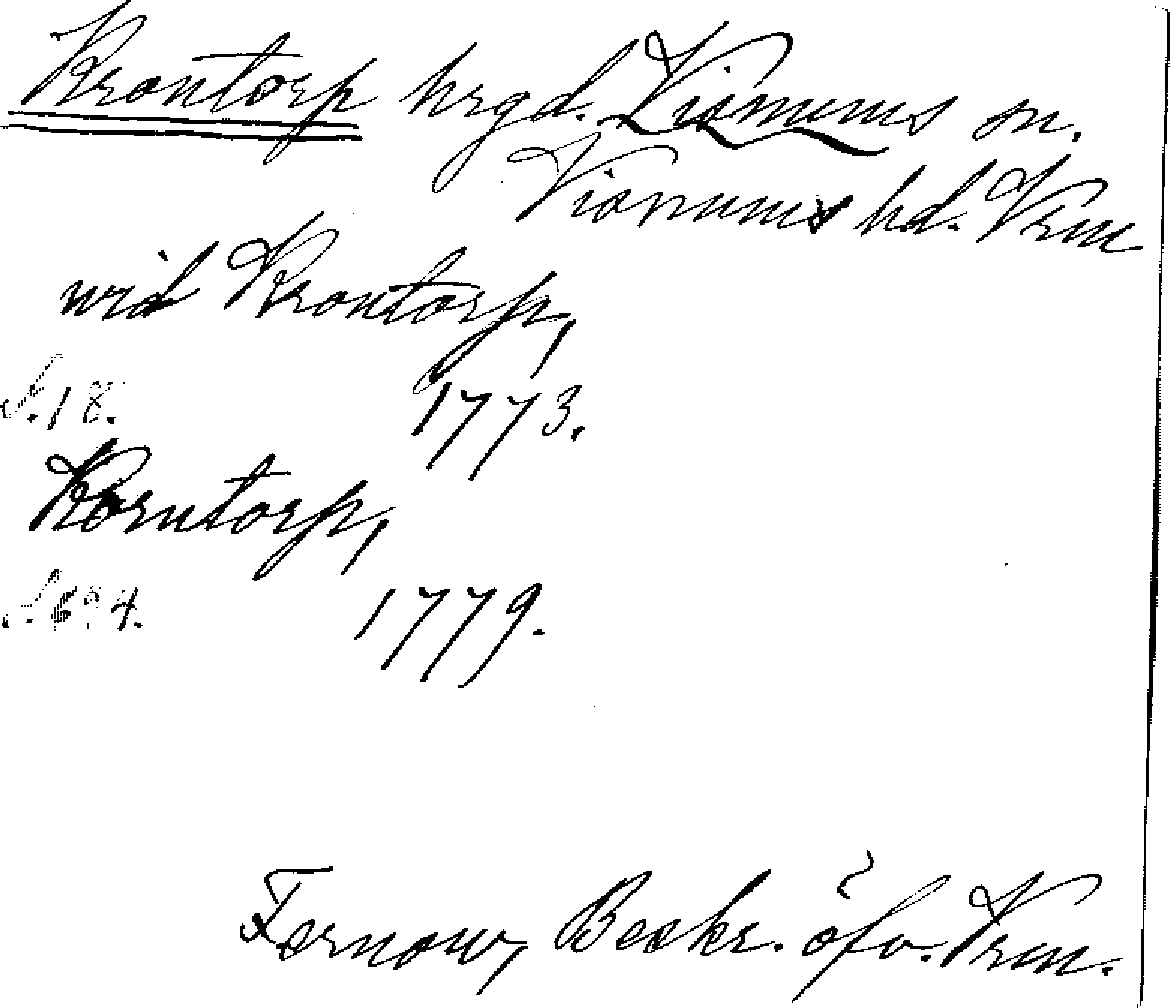 Krontorp hrgd. Visnums sn.
Visnums hd. Vrm
wid Krontorp,
S. 18. 1773.
Korntorp,
1779.
Fernow, Beskr. öfv. Vrm.